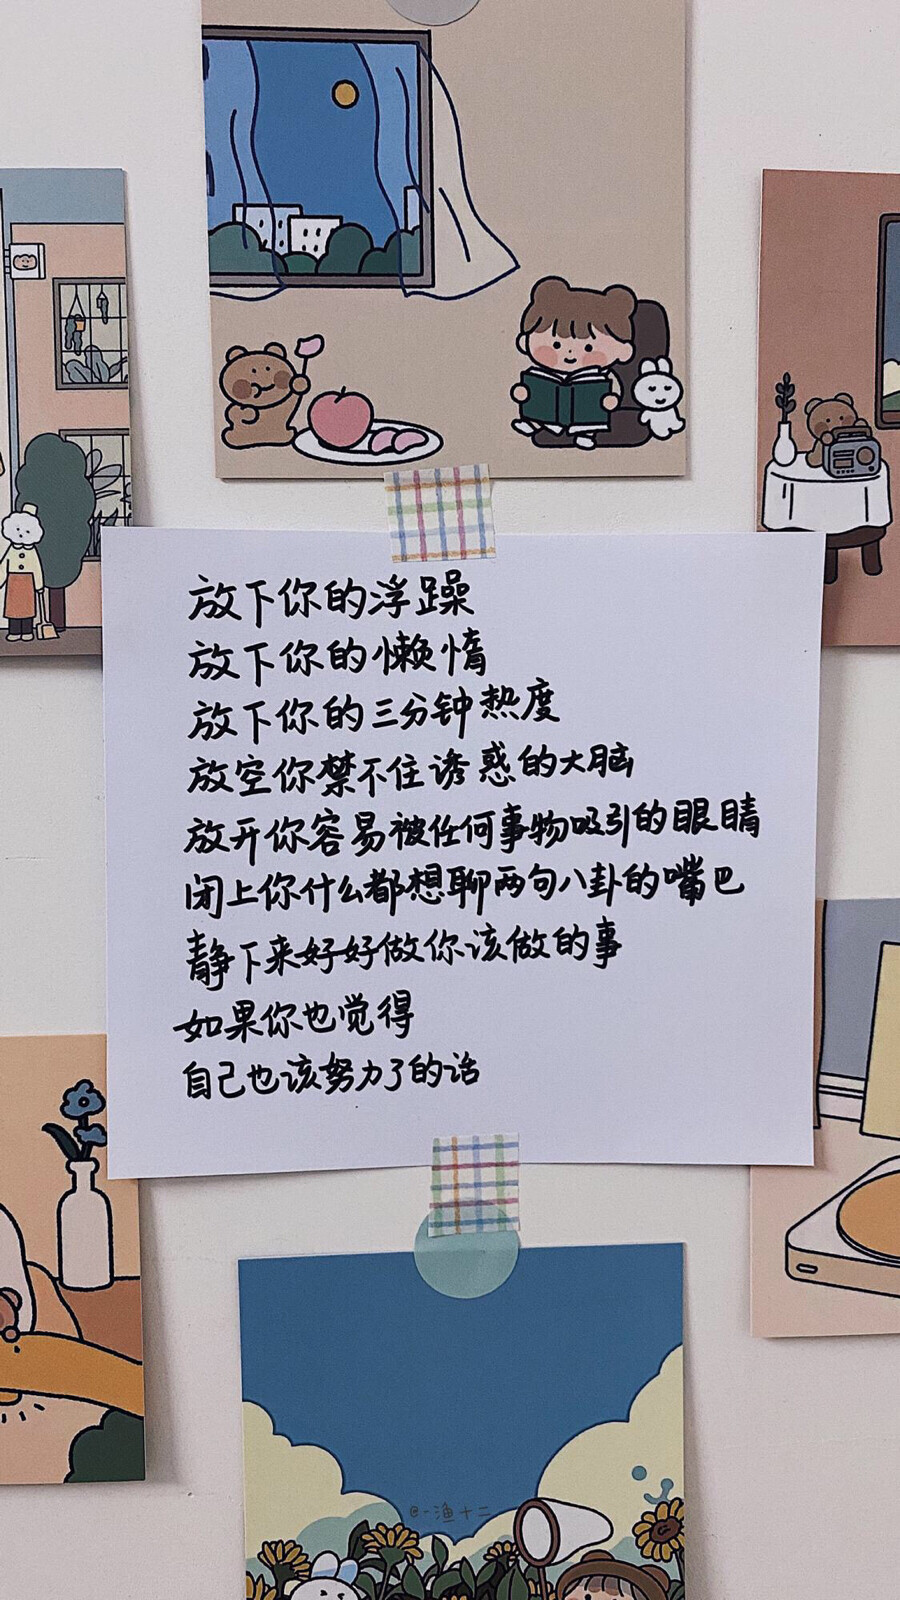 放下你的浮躁
放下你的懒惰
放下你的三分钟热度
放空你禁不住诱惑的大脑
放开你容易被任何事物吸引的眼睛
闭上你什么都想聊两句八卦的嘴巴
静下来好好做你该做的事
如果你也觉得
自己也该努力了的话
@一渔十二